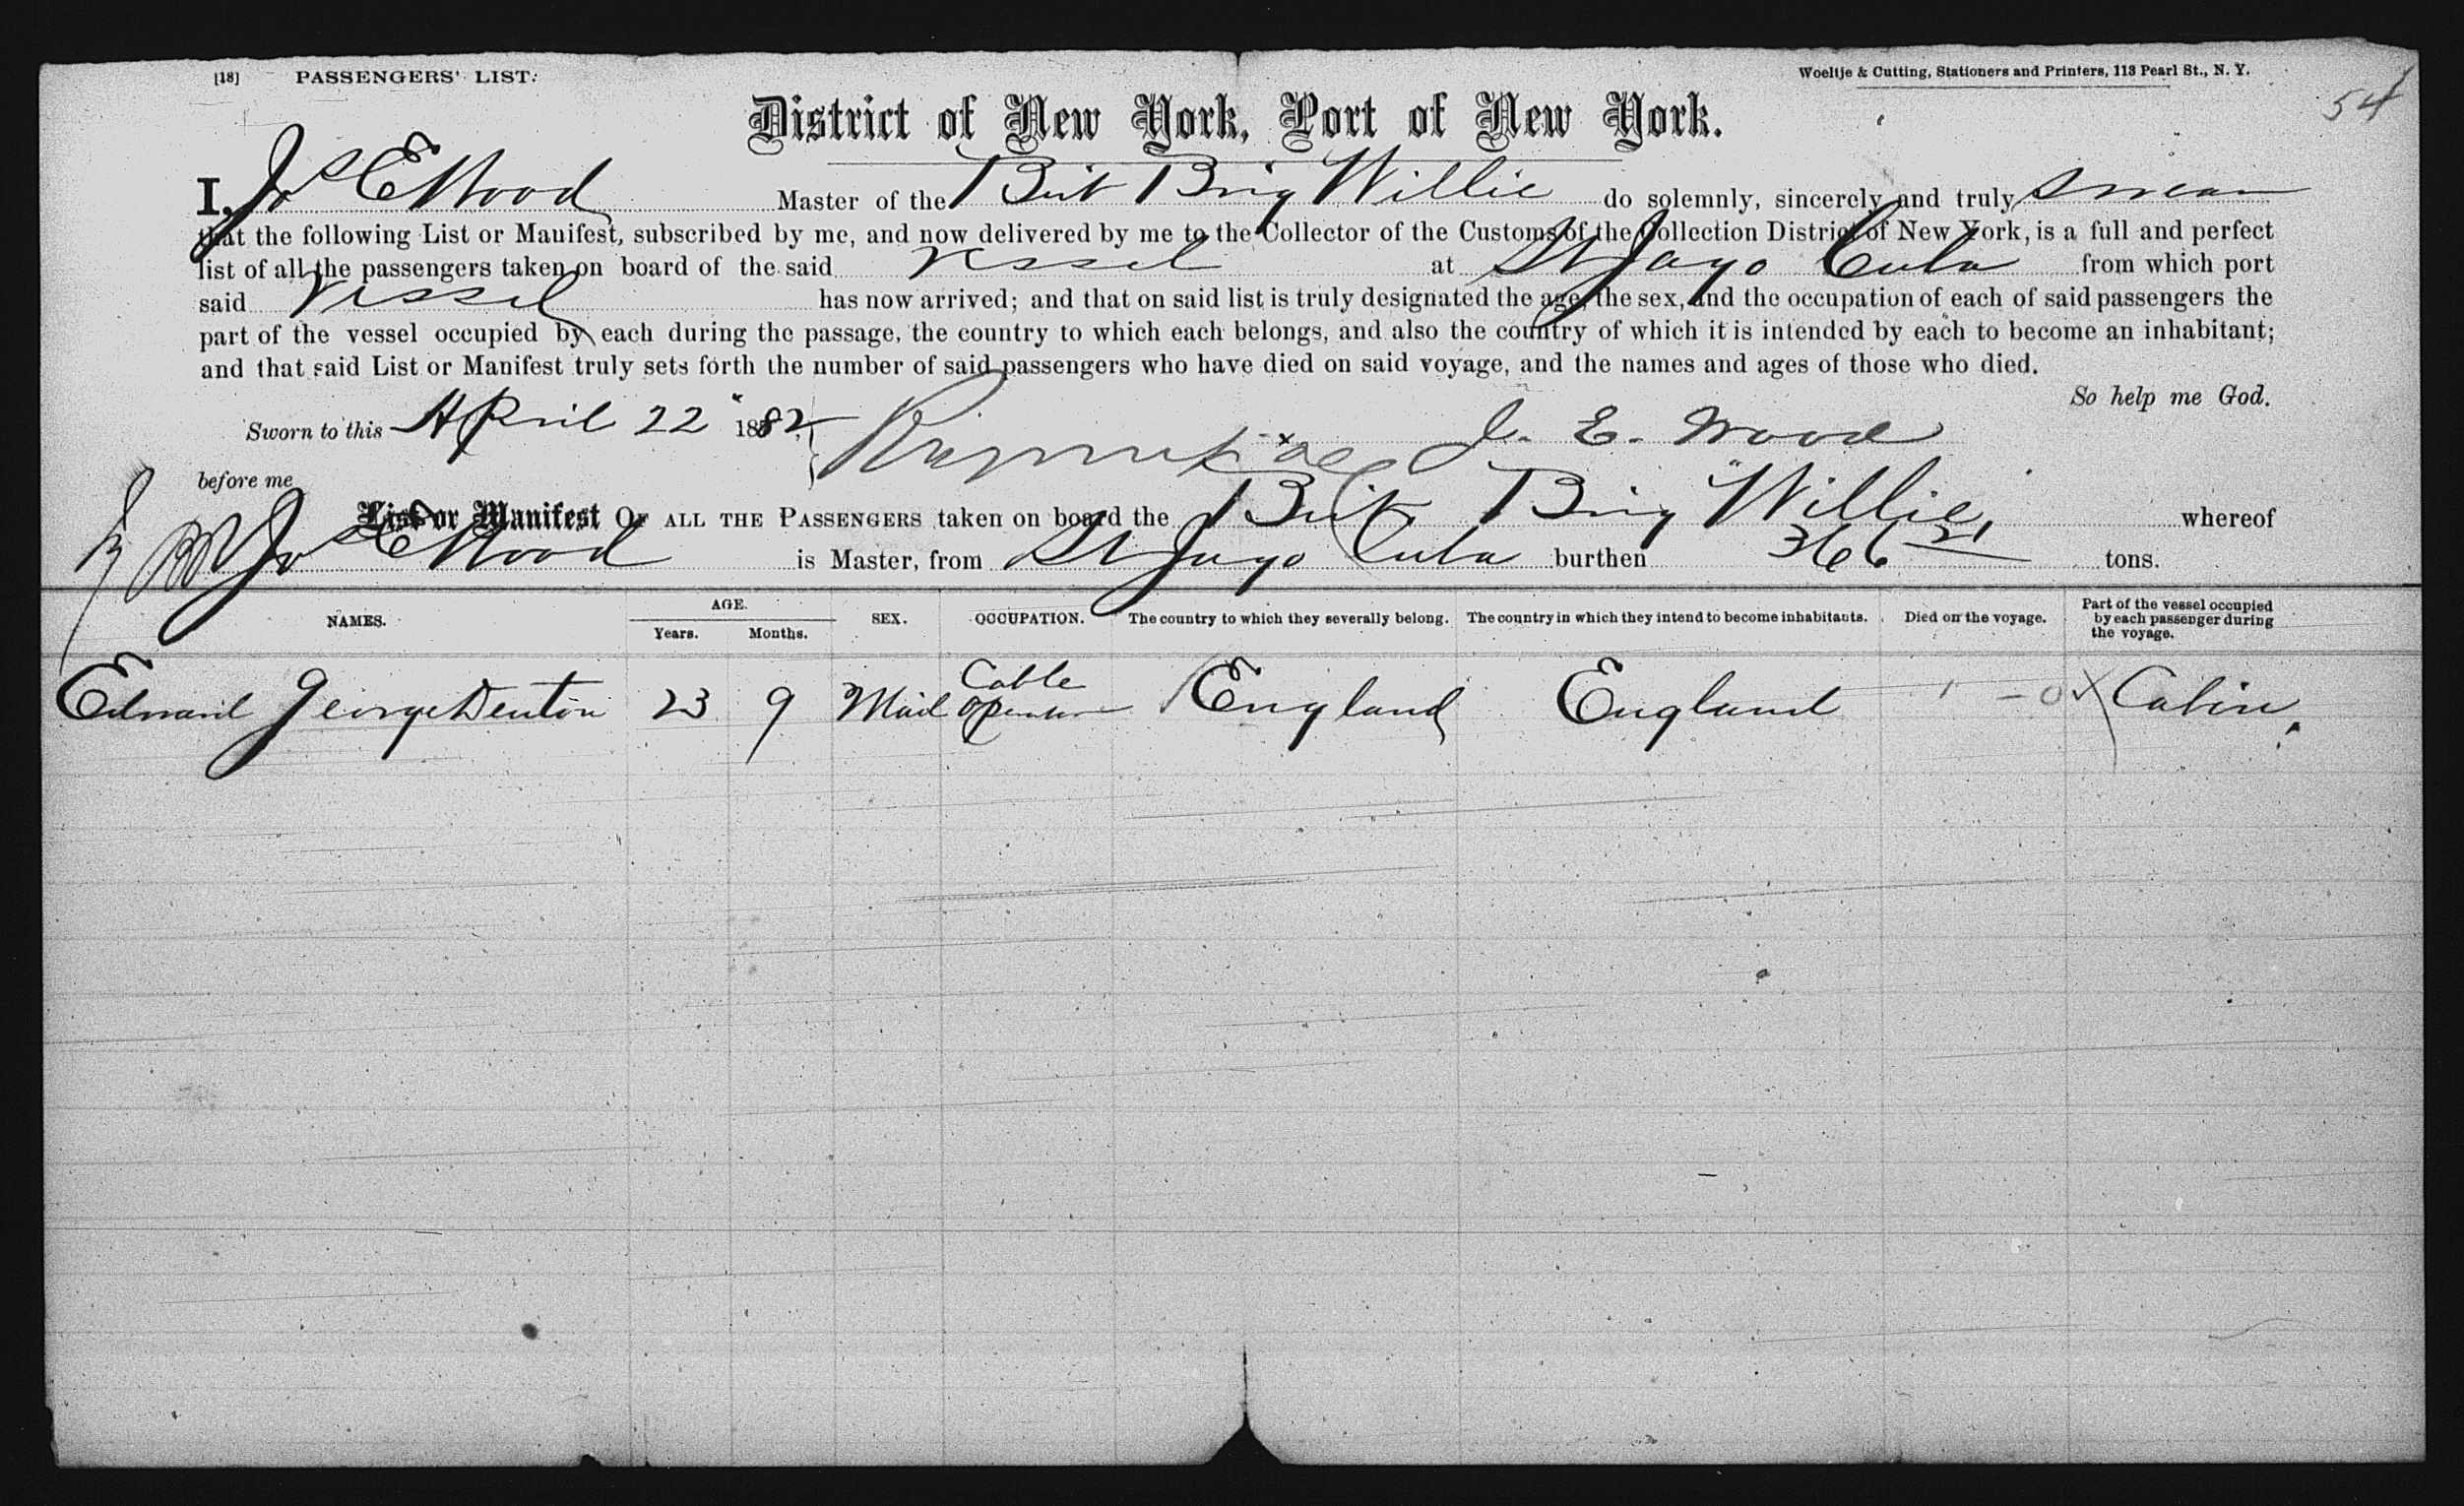 [18] PASSENGERS' LIST.
Woeltje & Cutting, Stationers and Printers, 113 Pearl St., N. Y.
54
District of New York, Port of New York.
I, Jos E Wood Master of the Brit Brig Willie do solemnly, sincerely and truly swear
that the following List or Manifest, subscribed by me, and now delivered by me to the Collector of the Customs of the Collection District of New York, is a full and perfect
list of all the passengers taken on board of the said vessel at St Jago Cuba from which port
said vessel has now arrived; and that on said list is truly designated the age, the sex, and the occupation of each of said passengers the
part of the vessel occupied by each during the passage, the country to which each belongs, and also the country of which it is intended by each to become an inhabitant;
and that said List or Manifest truly sets forth the number of said passengers who have died on said voyage, and the names and ages of those who died.
So help me God.
Sworn to this April 22" 1882 J. E. Wood
before me
List or Manifest OF ALL THE PASSENGERS taken on board the Brit Brig "Willie, whereof
Jos E Wood is Master, from St Jago Cuba burthen 366 21 tons.
NAMES. AGE. Years. Months. SEX. OCCUPATION. The country to which they severally belong. The country in which they intend to become inhabitants. Died on the voyage. Part of the vessel occupied by each passenger during the voyage.
Edward George Denton 23 9 Mail Cable Operator England England Cabin.